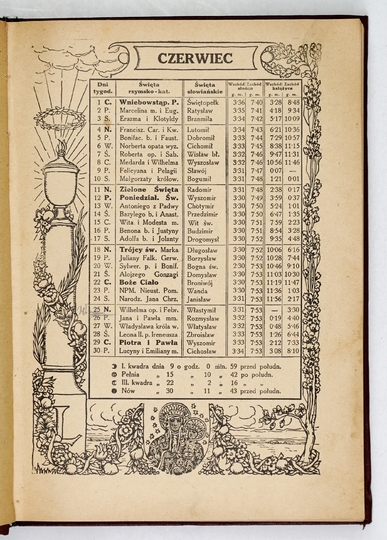 CZERWIEC
Dni tygod. Święta rzymsko - kat. Święta słowiańskie Wschód Zachód słońca g. m. g. m. Wschód Zachód księżyca g. m. g. m.
1 C. Wniebowstąp. P. Świętopełk 3·36 7·40 3·28 8·48
2 P. Marcelina m. i Eug. Ratysław 3·35 7·41 4·18 9·34
3 S. Erazma i Klotyldy Branmiła 3·34 7·42 5·17 10·09
4 N. Francisz. Car. i Kw. Lutomił 3·34 7·43 6·21 10·36
5 P. Bonifac. b. i Faust. Dobromił 3·33 7·44 7·29 10·57
6 W. Norberta opata wyz. Cichomił 3·33 7·45 8·38 11·15
7 Ś. Roberta op. i Sab. Wisław bł. 3·32 7·46 9·47 11·31
8 C. Medarda i Wilhelma Wyszosław 3·32 7·46 10·56 11·46
9 P. Felicyana i Pelagii Sławój 3·31 7·47 0·07 —
10 S. Małgorzaty królow. Bogumił 3·31 7·48 1·21 0·01
11 N. Zielone Święta Radomir 3·31 7·48 2·38 0·17
12 P. Poniedział. Św. Wyszomir 3·30 7·49 3·59 0·37
13 W. Antoniego z Padwy Chotymir 3·30 7·50 5·24 1·01
14 Ś. Bazylego b. i Anast. Przedzimir 3·30 7·50 6·47 1·35
15 C. Wita i Modesta m. Wit św. 3·30 7·51 7·59 2·23
16 P. Benona b. i Justyny Budzimir 3·30 7·51 8·54 3·28
17 S. Adolfa b. i Jolanty Drogomysł 3·30 7·52 9·35 4·48
18 N. Trójcy św. Marka Długosław 3·30 7·52 10·06 6·16
19 P. Juliany Falk. Gerw. Borzysław 3·30 7·52 10·28 7·44
20 W. Sylwer. p. i Bonif. Bogna św. 3·30 7·53 10·46 9·10
21 Ś. Alojzego Gonzagi Domysław 3·30 7·53 11·03 10·30
22 C. Boże Ciało Broniwój 3·30 7·53 11·19 11·47
23 P. NPM. Nieust. Pom. Wanda 3·30 7·53 11·36 1·03
24 S. Narodz. Jana Chrz. Janisław 3·31 7·53 11·56 2·17
25 N. Wilhelma op. i Febr. Włastymił 3·31 7·53 — 3·30
26 P. Jana i Pawła mm. Rozmysław 3·32 7·53 0·19 4·40
27 W. Władysława króla w. Władysław 3·32 7·53 0·48 5·46
28 Ś. Leona II. p. Ireneusza Zbroisław 3·33 7·53 1·26 6·44
29 C. Piotra i Pawła Wyszomir 3·33 7·53 2·12 7·33
30 P. Lucyny i Emiliany m. Cichosław 3·34 7·53 3·08 8·10
I. kwadra dnia 9 o godz. 0 min. 59 przed połudn.
Pełnia „ 15 „ 10 „ 42 po połudn.
III. kwadra „ 22 „ 2 „ 16 „ „
Nów „ 30 „ 11 „ 43 przed połudn.